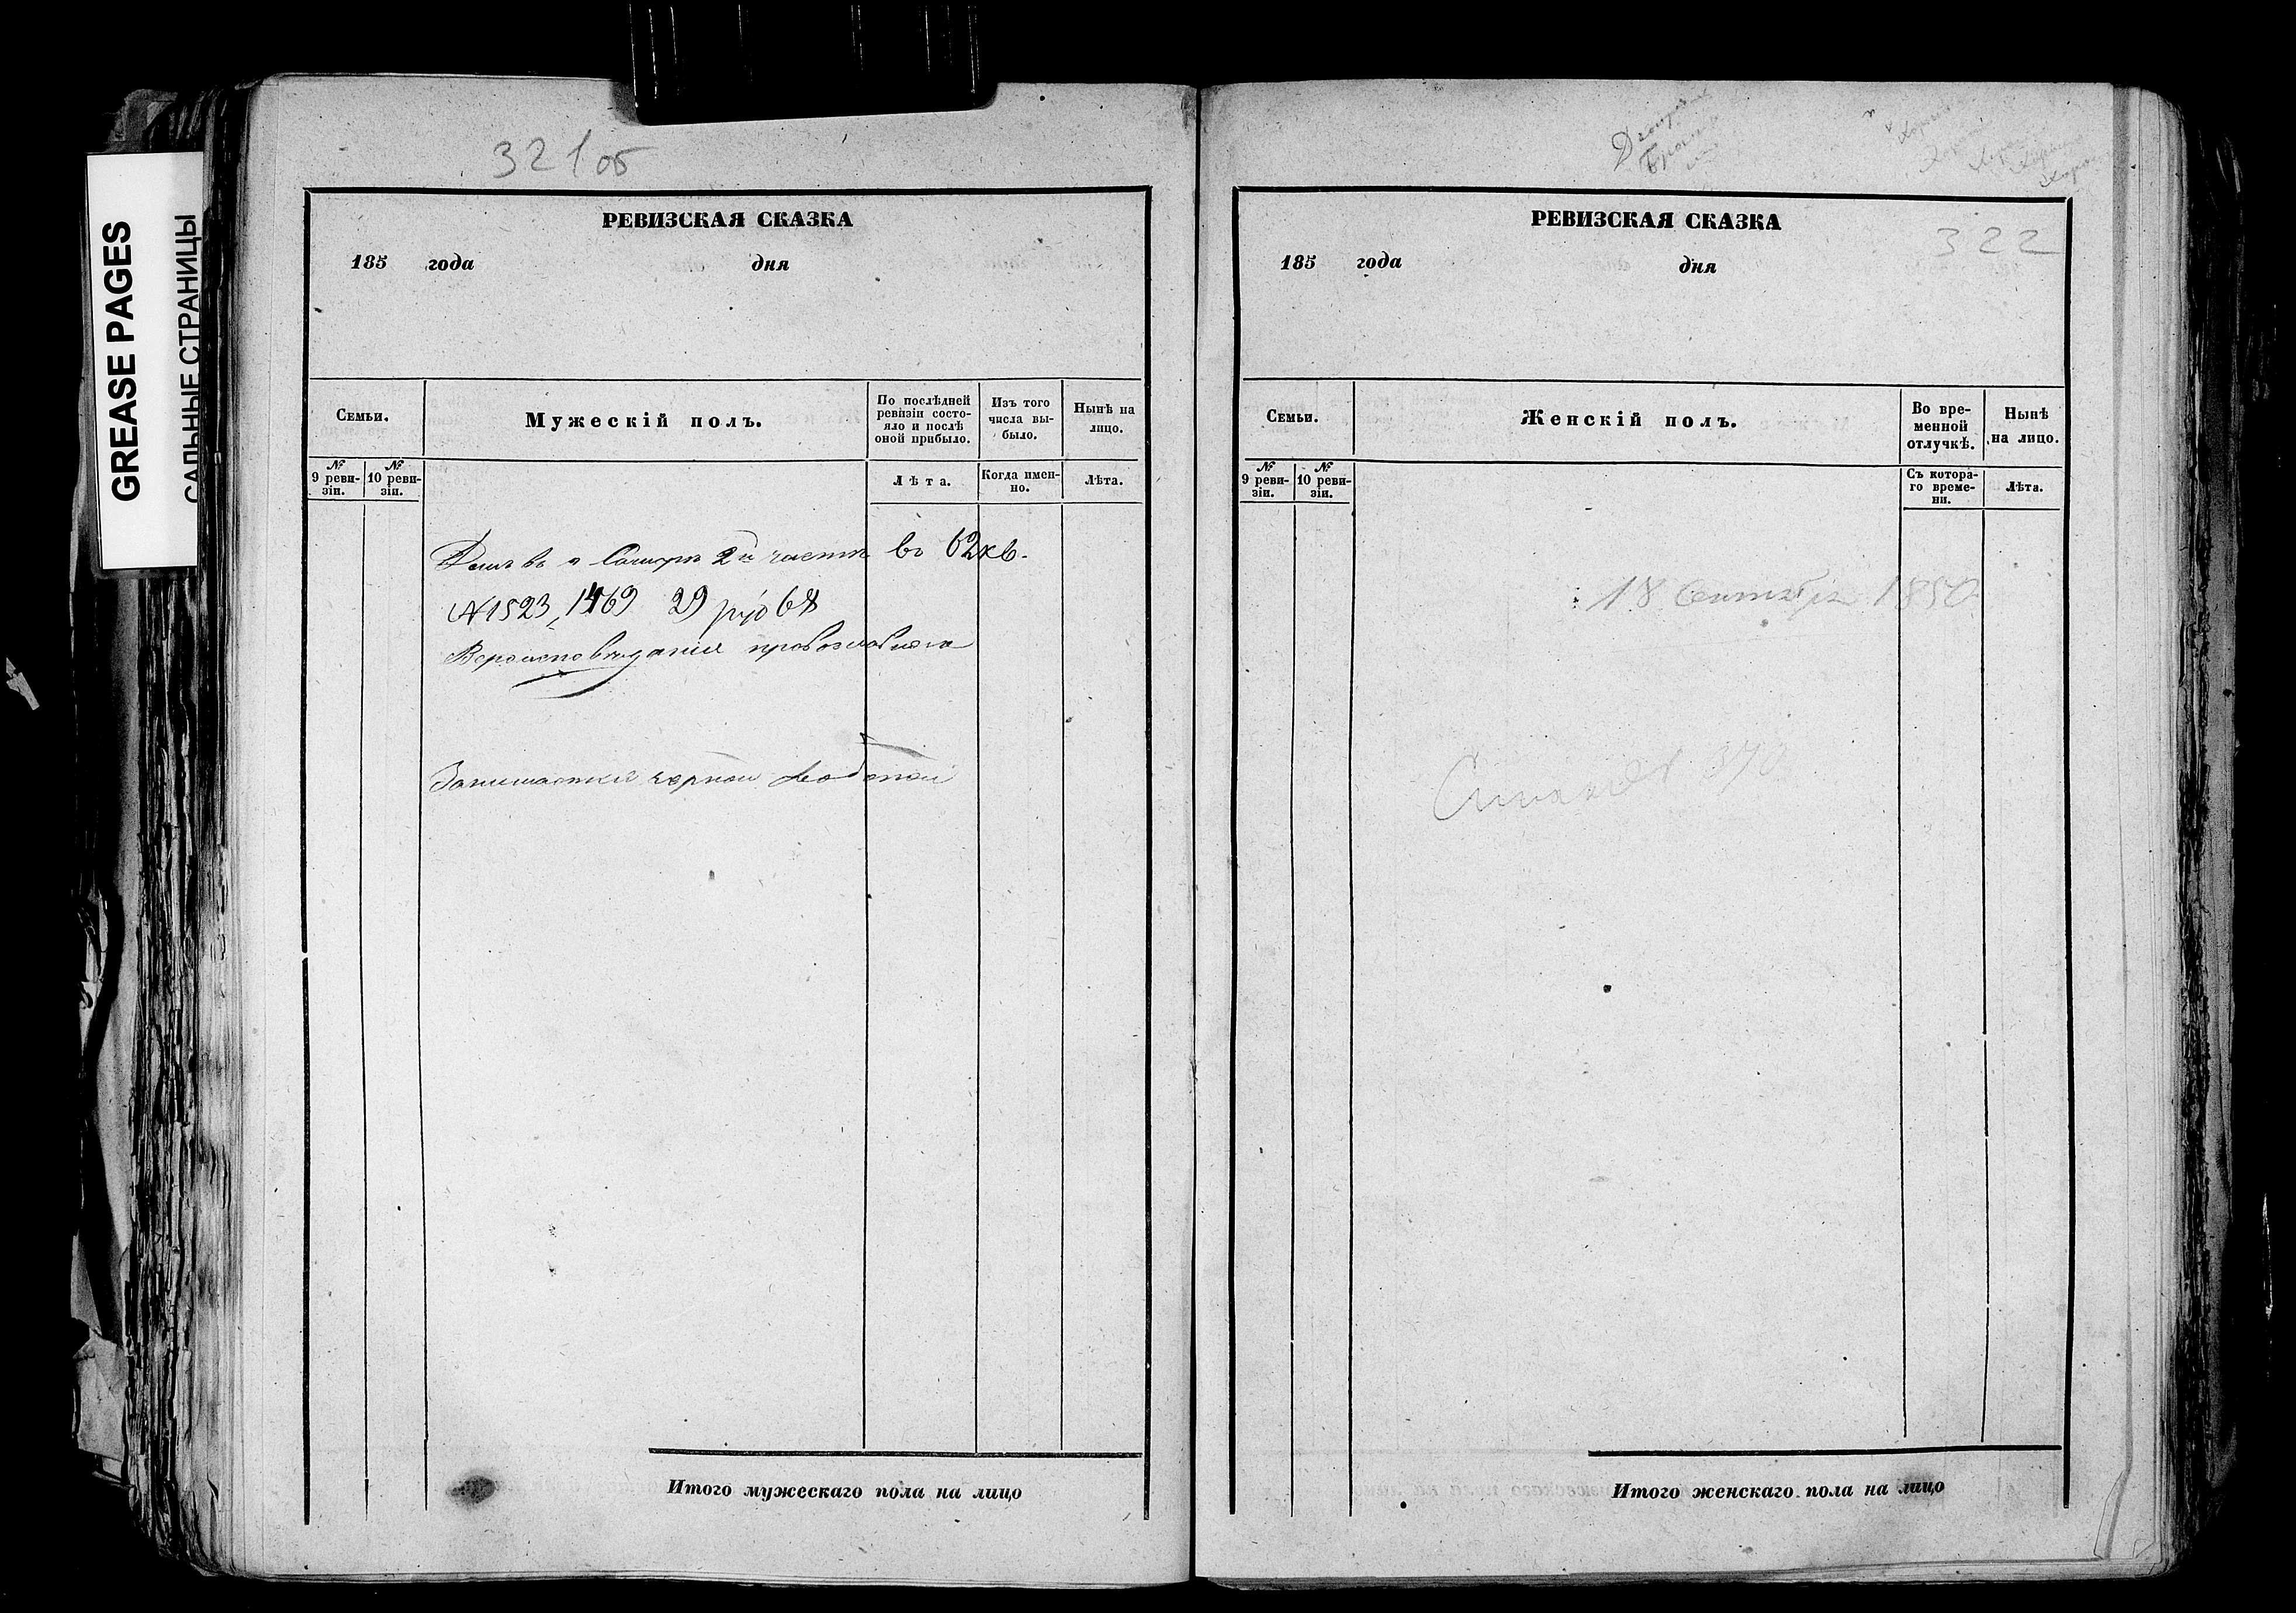 GREASE PAGES
САЛЬНЫЕ СТРАНИЦЫ
321об
РЕВИЗСКАЯ СКАЗКА
185 года дня
Семьи.
Мужескій полъ.
По послѣдней ревизіи состо-
яло и послѣ
оной прибыло.
Изъ того
числа вы-
было.
Нынѣ на
лицо.
№
9 реви-
зіи.
№
10 реви-
зіи.
Лѣта.
Когда имен-
но.
Лѣта.
2й части во 62 кв.
№ 1523, 1469 29
Вероисповедания
Итого мужескаго пола на лицо
322
РЕВИЗСКАЯ СКАЗКА
185 года дня
Семьи.
Женскій полъ.
Во вре-
менной
отлучкѣ.
Нынѣ
на лицо.
№
9 реви-
зіи.
№
10 реви-
зіи.
Съ котора-
го време-
ни.
Лѣта.
18 Сентября 1850
Итого женскаго пола на лицо